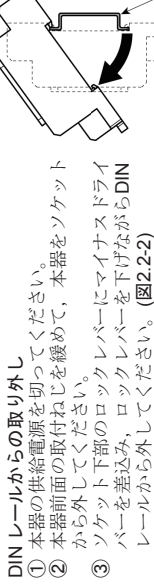 DIN レールからの取り外し
① 本器の供給電源を切ってください。
② 本器前面の取付ねじを緩めて，本器をソケット
から外してください。
③ ソケット下部のロックレバーにマイナスドライ
バーを差込み，ロックレバーを下げながらDIN
レールから外してください。(図2.2-2)